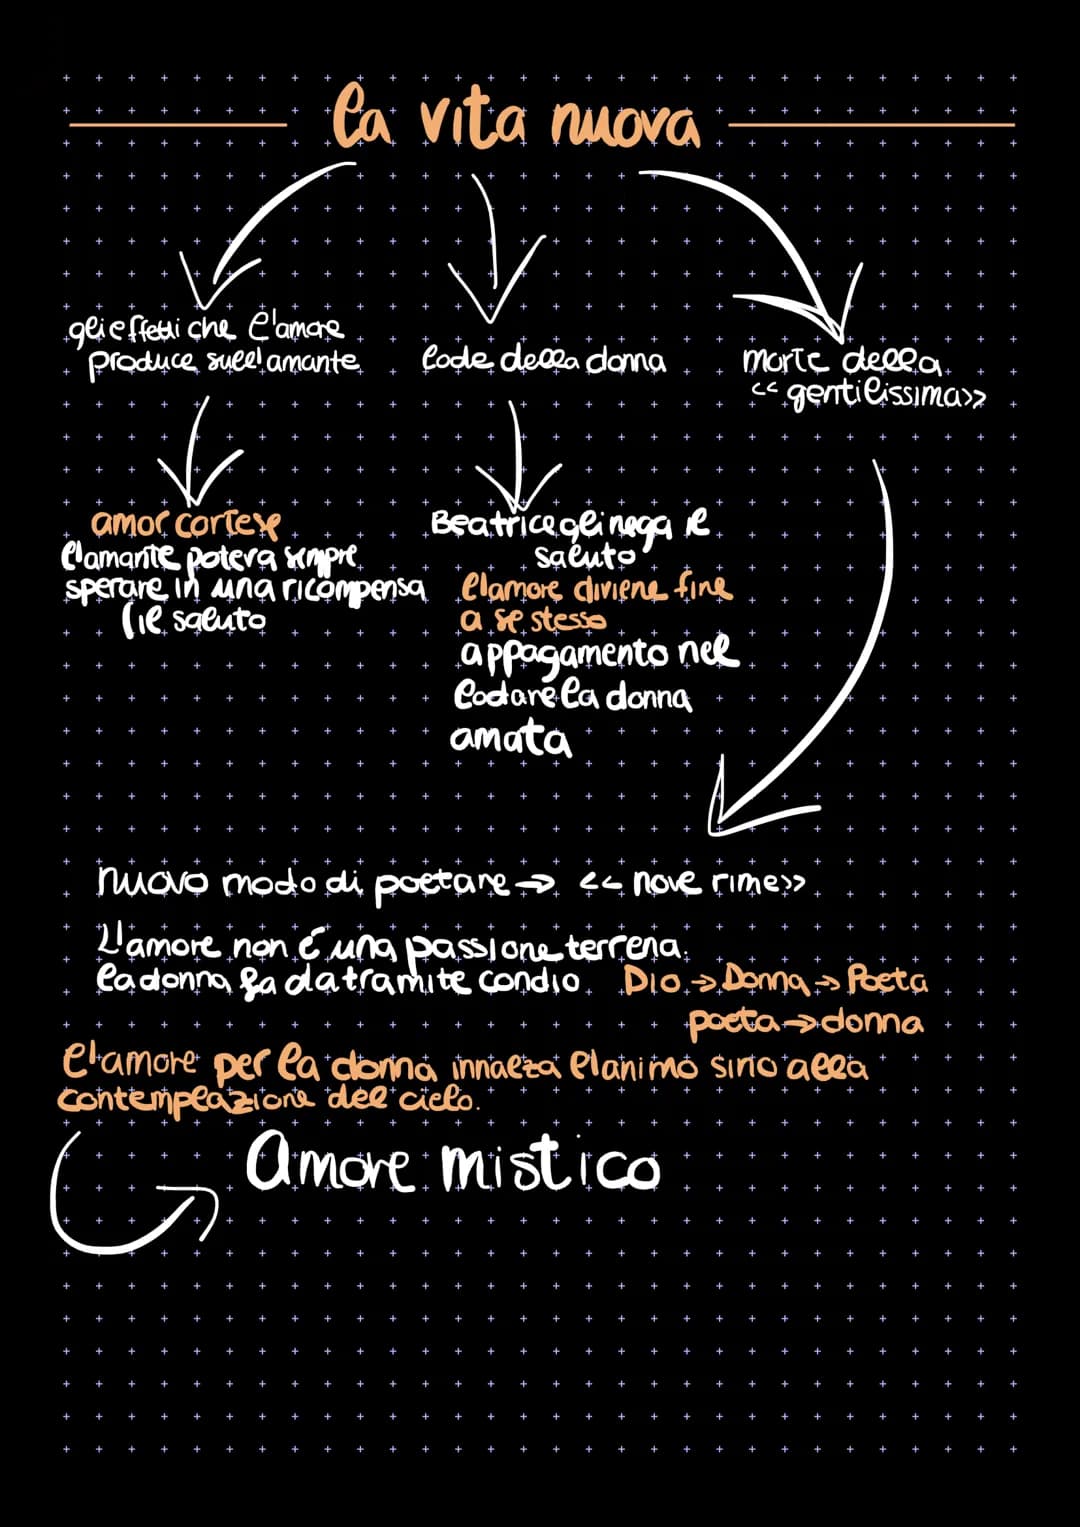 la vita nuova
gli effetti che l'amore
produce sull'amante
lode della donna
morte della
<< gentilissima>>
amor cortese
l'amante poteva sempre
sperare in una ricompensa
(il saluto
Beatrice gli nega il
saluto
l'amore diviene fine
a se stesso
appagamento nel
lodare la donna
amata
nuovo modo di poetare → << nove rime>>
L'amore non é una passione terrena.
la donna fa da tramite con dio Dio → Donna → Poeta
poeta → donna
l'amore per la donna innalza l'animo sino alla
contemplazione del cielo.
Amore mistico